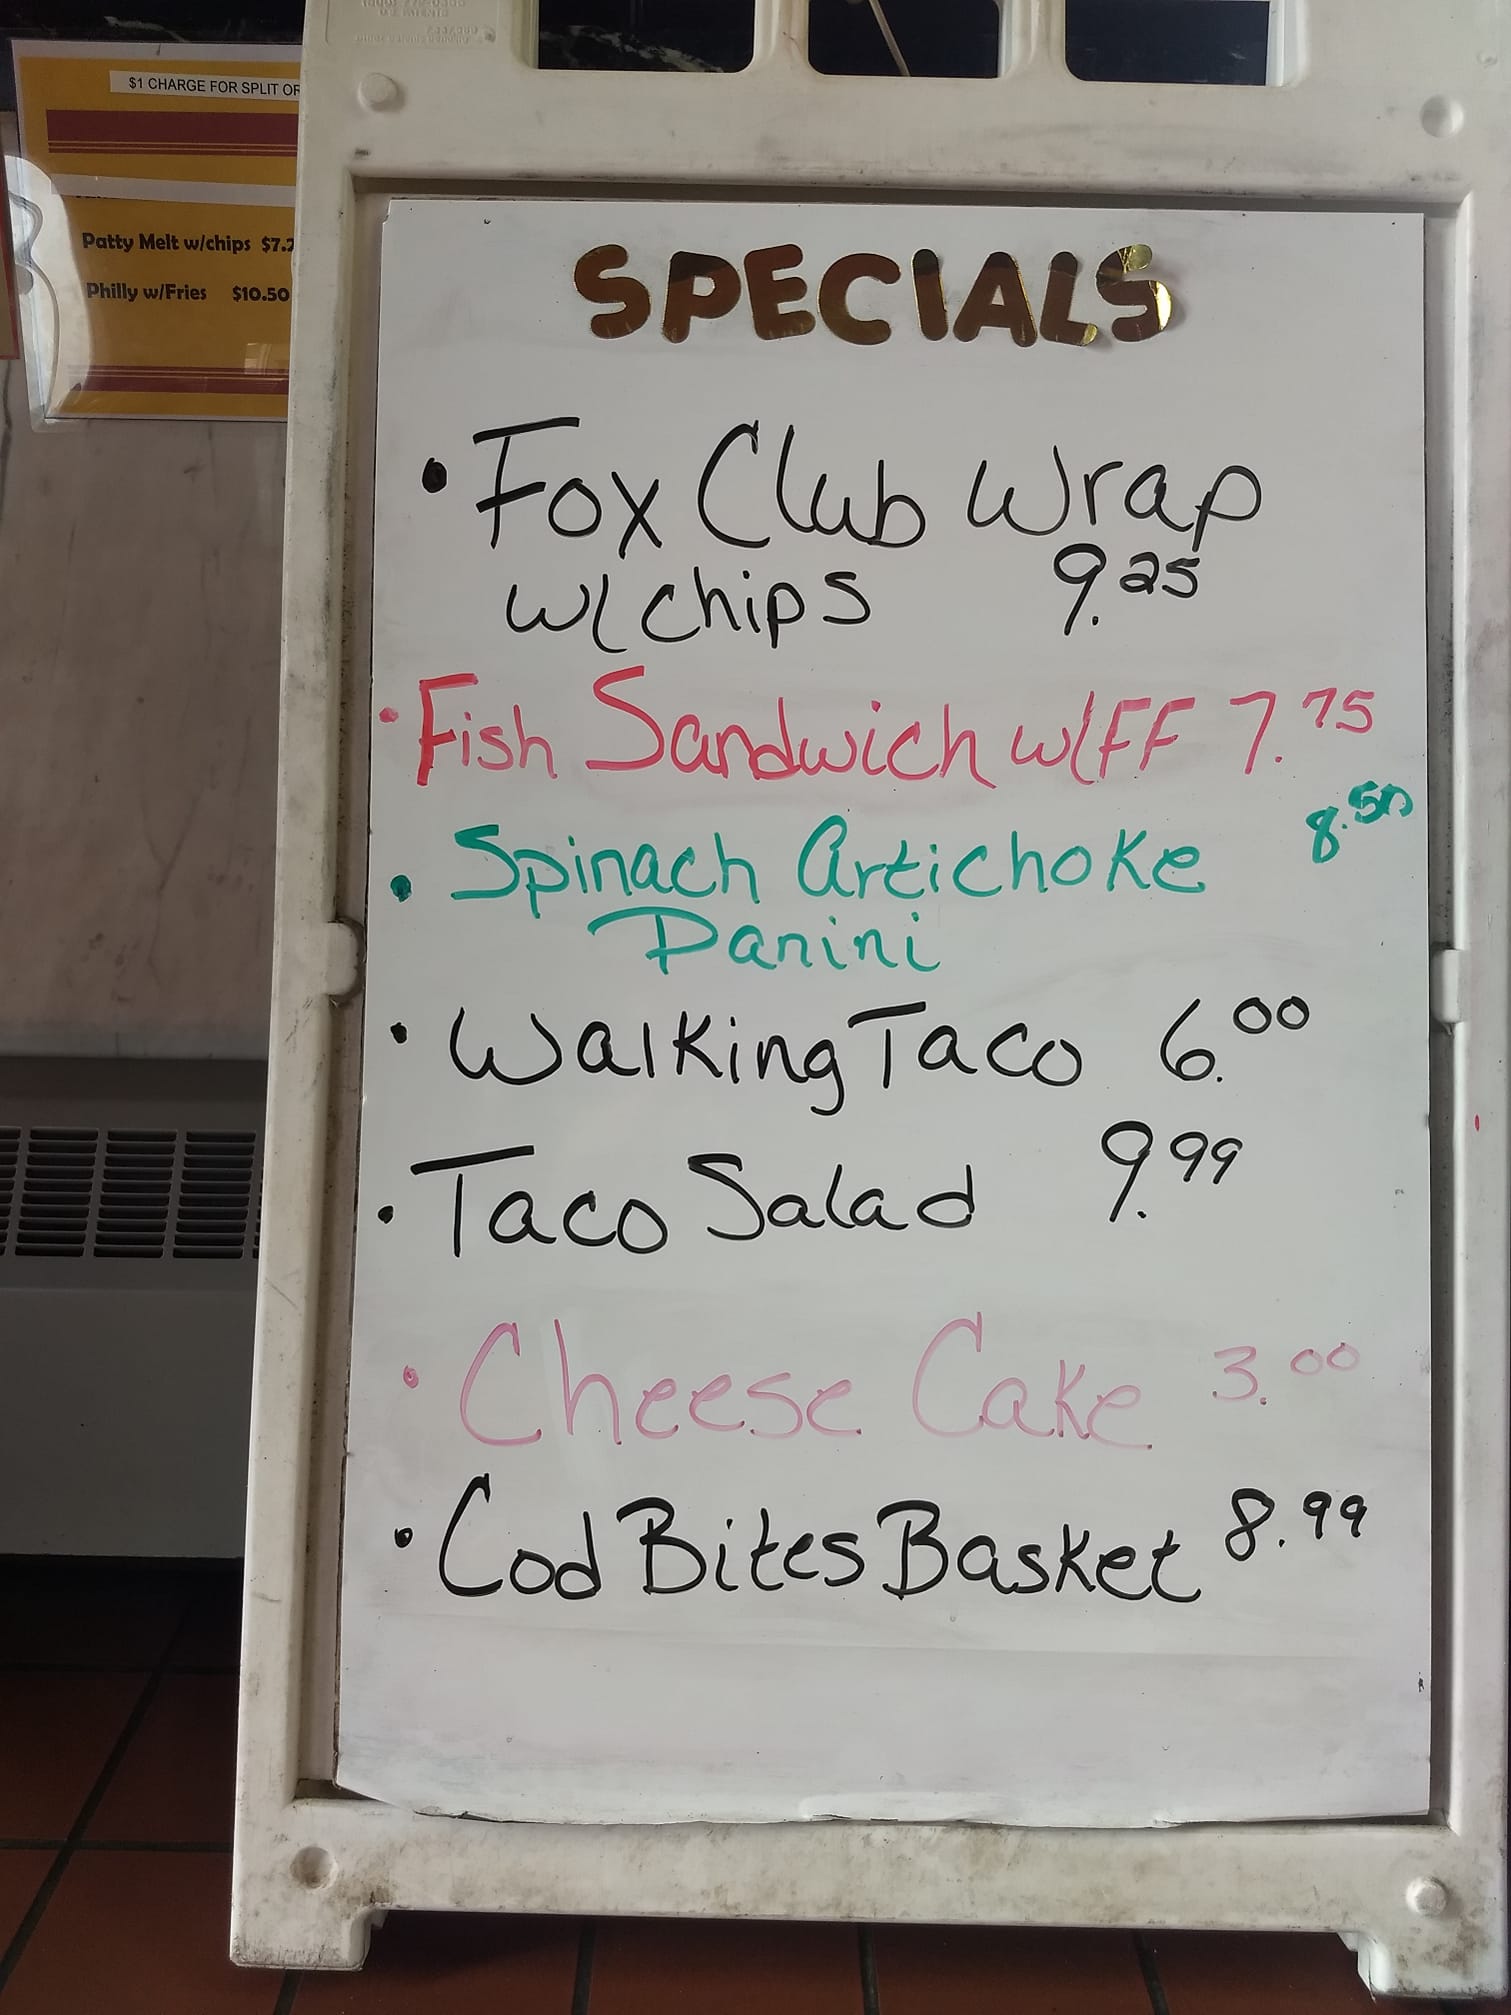 $1 CHARGE FOR SPLIT
Patty Melt w/chips
Philly w/Fries $10.50
SPECIALS
• Fox Club Wrap
w/chips 9.25
• Fish Sandwich w/FF 7.75
• Spinach Artichoke 8.50
Panini
• Walking Taco 6.00
• Taco Salad 9.99
• Cheese Cake 3.00
• Cod Bites Basket 8.99